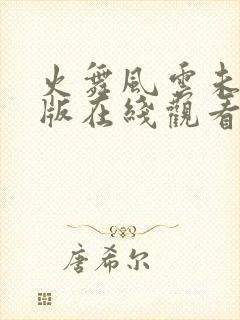 火舞風雲未
版在綫觀看
唐希尔